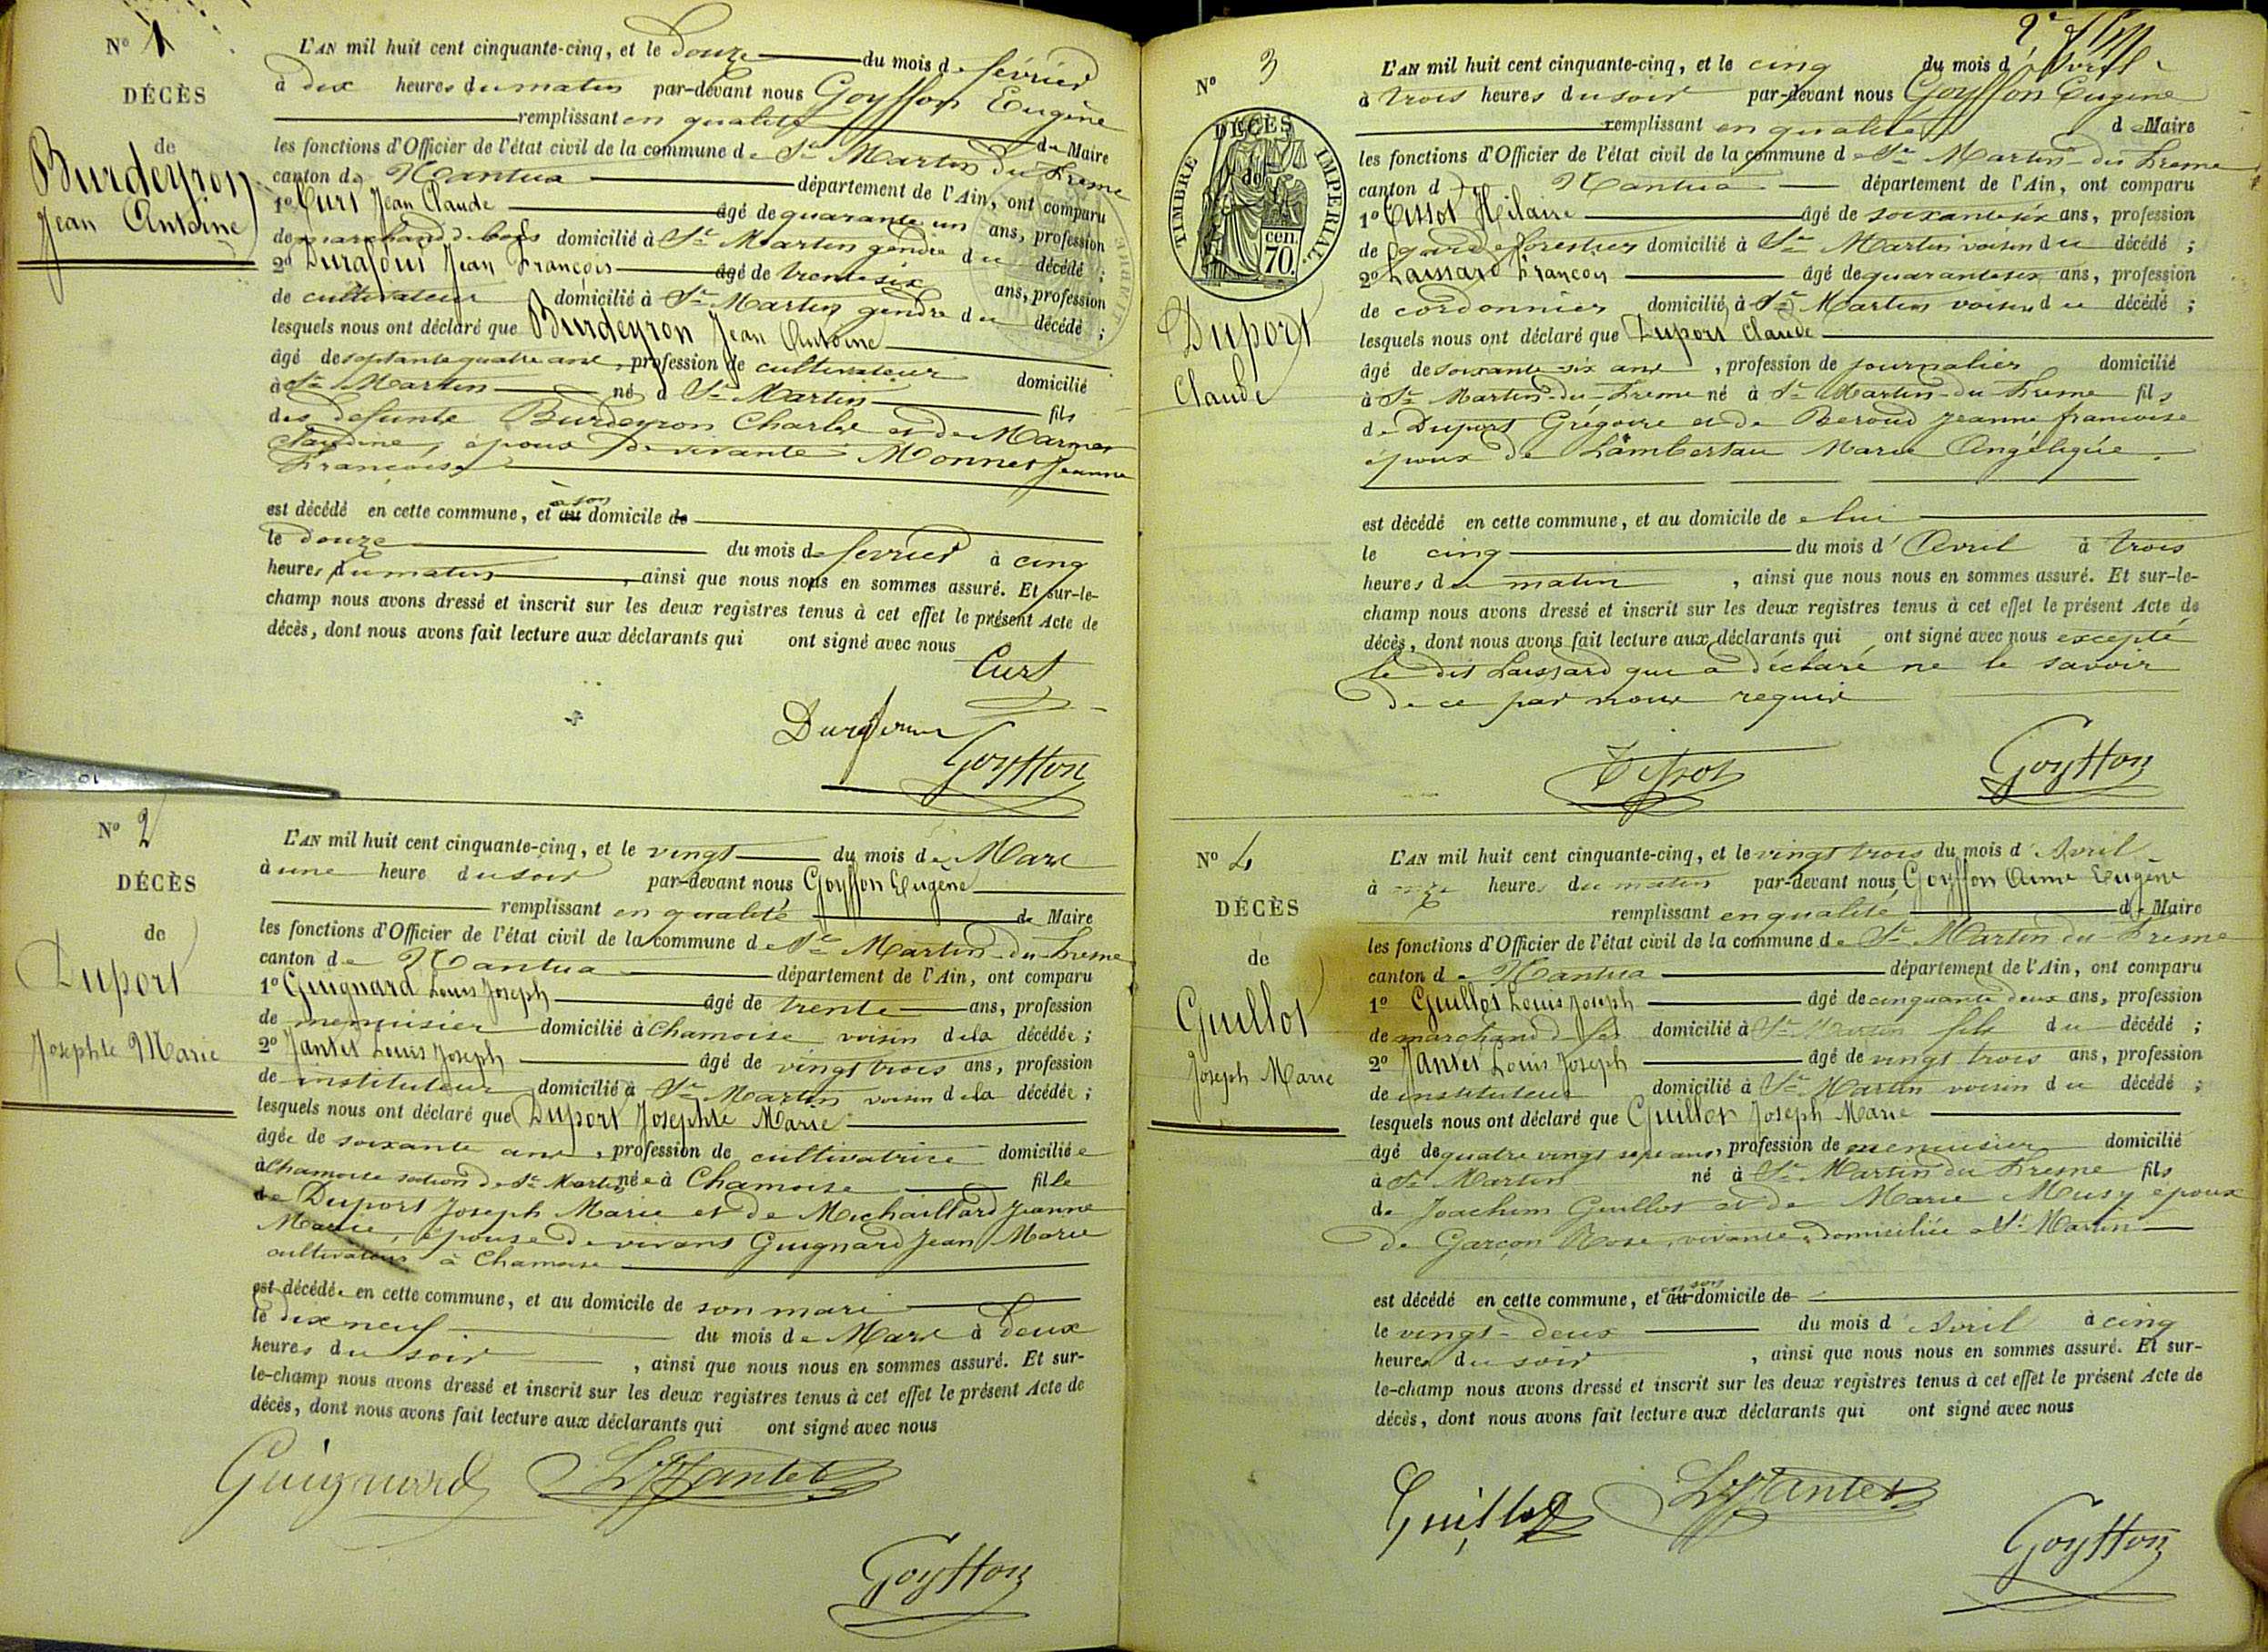 N° 1
DÉCÈS
de
Burdeyron
Jean Antoine
L'AN mil huit cent cinquante-cinq, et le douze du mois de février
à dix heures du matin par-devant nous Goyffon Eugène
remplissant en qualité de Maire
les fonctions d'Officier de l'état civil de la commune de St Martin du Fresne
canton de Nantua département de l'Ain, ont comparu
1° Curt Jean Claude âgé de quarante un ans, profession
de marchand de bois domicilié à St Martin gendre du décédé ;
2° Durafour Jean François âgé de trente six ans, profession
de cultivateur domicilié à St Martin gendre du décédé ;
lesquels nous ont déclaré que Burdeyron Jean Antoine
âgé de septante quatre ans, profession de cultivateur domicilié
à St Martin né à St Martin fils
des defunts Burdeyron Charles et de Marmet
époux de vivante Monnet Jeanne
Françoise
est décédé en cette commune, et au à son domicile de
le douze du mois de février à cinq
heures du matin, ainsi que nous nous en sommes assuré. Et sur-le-
champ nous avons dressé et inscrit sur les deux registres tenus à cet effet le présent Acte de
décès, dont nous avons fait lecture aux déclarants qui ont signé avec nous
Curt
Durafour
Goyffon
N° 2
DÉCÈS
de
Duport
Josephte Marie
L'AN mil huit cent cinquante-cinq, et le vingt du mois de Mars
à une heure du soir par-devant nous Goyffon Eugène
remplissant en qualité de Maire
les fonctions d'Officier de l'état civil de la commune de St Martin-du-Fresne
canton de Nantua département de l'Ain, ont comparu
1° Guignard Louis Joseph âgé de trente ans, profession
de menuisier domicilié à Chamoise voisin de la décédée ;
2° Jantet Louis Joseph âgé de vingt trois ans, profession
de instituteur domicilié à St Martin voisin de la décédée ;
lesquels nous ont déclaré que Duport Josephte Marie
âgée de soixante ans, profession de cultivatrice domiciliée
à Chamoise section de St Martin née à Chamoise fille
de Duport Joseph Marie et de Michaillard Jeanne
Marie, épouse de vivant Guignard Jean Marie
cultivateur à Chamoise
est décédée en cette commune, et au domicile de son mari
le dix neuf du mois de Mars à deux
heures du soir, ainsi que nous nous en sommes assuré. Et sur-
le-champ nous avons dressé et inscrit sur les deux registres tenus à cet effet le présent Acte de
décès, dont nous avons fait lecture aux déclarants qui ont signé avec nous
Guignard LJJantet
Goyffon
N° 3
TIMBRE IMPÉRIAL
70 cen
DÉCÈS
de
Duport
Claude
L'AN mil huit cent cinquante-cinq, et le cinq du mois d'Avril
à trois heures du soir par-devant nous Goyffon Eugène
remplissant en qualité de Maire
les fonctions d'Officier de l'état civil de la commune de St Martin-du Fresne
canton d Nantua département de l'Ain, ont comparu
1° Tissot Hilaire âgé de soixante six ans, profession
de garde forestier domicilié à St Martin voisin du décédé ;
2° Laissard François âgé de quarante six ans, profession
de cordonnier domicilié à St Martin voisin du décédé ;
lesquels nous ont déclaré que Duport Claude
âgé de soixante-six ans, profession de journalier domicilié
à St Martin-du-Fresne né à St Martin-du Fresne fils
de Duport Grégoire et de Beroud Jeanne francoise
époux de Lambertau Marie Angélique.
est décédé en cette commune, et au domicile de lui
le cinq du mois d'Avril à trois
heures du matin, ainsi que nous nous en sommes assuré. Et sur-le-
champ nous avons dressé et inscrit sur les deux registres tenus à cet effet le présent Acte de
décès, dont nous avons fait lecture aux déclarants qui ont signé avec nous excepté
le dit Laissard qui a déclaré ne le savoir
de ce par nous requis
Tissot Goyffon
N° 4
DÉCÈS
de
Guillot
Joseph Marie
L'AN mil huit cent cinquante-cinq, et le vingt trois du mois d'Avril
à onze heures du matin par-devant nous Goyffon Aimé Eugène
remplissant en qualité de Maire
les fonctions d'Officier de l'état civil de la commune de St Martin du Fresne
canton de Nantua département de l'Ain, ont comparu
1° Guillot Louis Joseph âgé de cinquante deux ans, profession
de marchand de fer domicilié à St Martin fils du décédé ;
2° Jantet Louis Joseph âgé de vingt trois ans, profession
de instituteur domicilié à St Martin voisin du décédé ;
lesquels nous ont déclaré que Guillot Joseph Marie
âgé de quatre vingt sept ans, profession de menuisier domicilié
à St Martin né à St Martin du Fresne fils
de Joachim Guillot et de Marie Musy époux
de Garçon Rose, vivante, domiciliée à St Martin
est décédé en cette commune, et au en son domicile de
le vingt-deux du mois d'Avril à cinq
heures du soir, ainsi que nous nous en sommes assuré. Et sur-
le-champ nous avons dressé et inscrit sur les deux registres tenus à cet effet le présent Acte de
décès, dont nous avons fait lecture aux déclarants qui ont signé avec nous
Guillot LJJantet
Goyffon